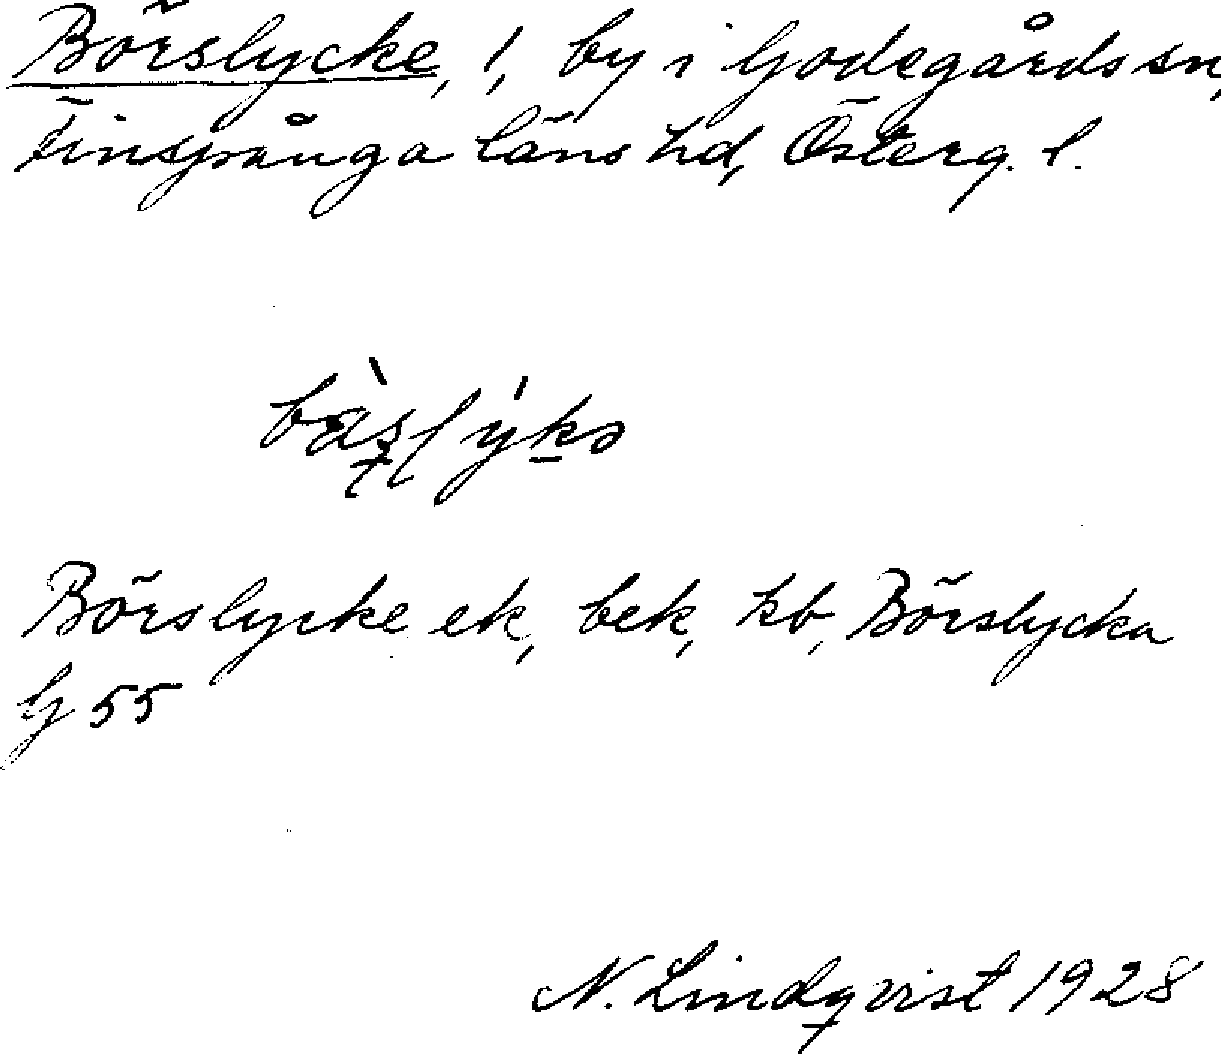 Börslycke, 1, by i Godegårds sn,
Finspånga läns hd, Österg. l.
Börslycke ek, bek, kb, Börslycka
G 55
N. Lindqvist 1928